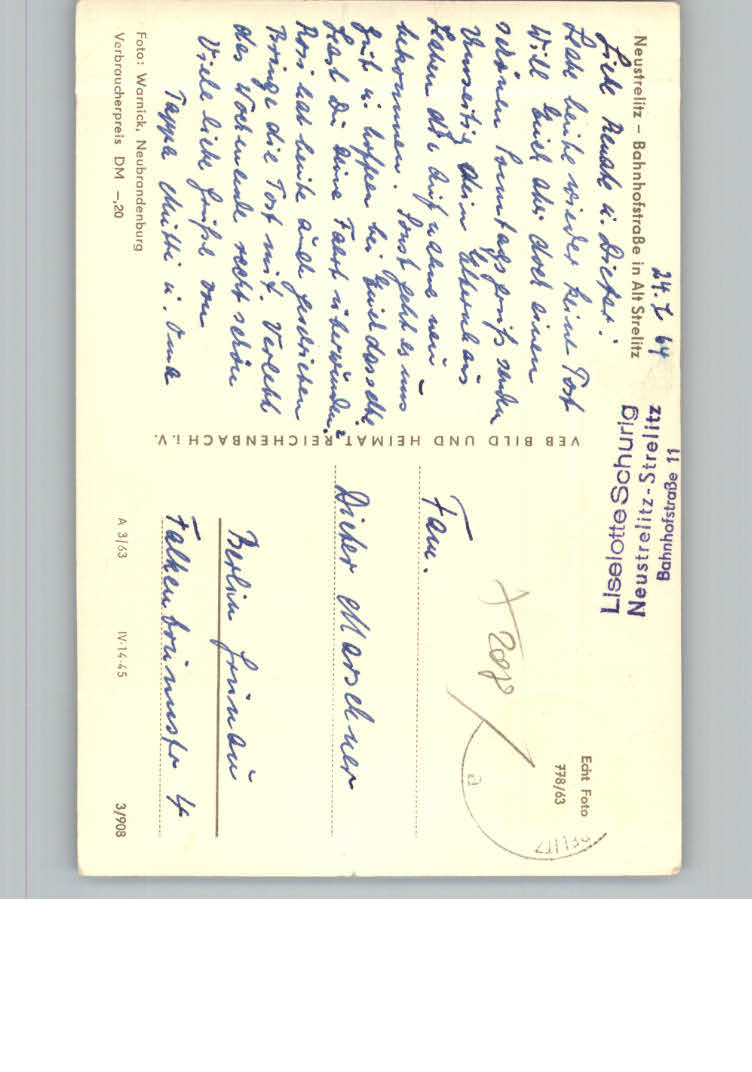 Neustrelitz – Bahnhofstraße in Alt Strelitz
24. 7. 64
Liebe Renate u. Dieter!
Habe heute wieder keine Post
Will Euch aber doch einen
schönen Sonntagsgruß senden
Umseitig dein Elternhaus
haben die Aufnahme neu
bekommen. Sonst geht es uns
gut u. hoffen bei Euch dasselbe
Hast Du Deine Fahrt überwunden?
Rosi hat heute auch geschrieben
Bringe die Post mit. Verlebt
das Wochenende recht schön
Viele liebe Grüße von
Pappa Mutti u. Oma
Foto: Warnick, Neubrandenburg
Verbraucherpreis DM –,20
VEB BILD UND HEIMAT REICHENBACH i. V.
Liselotte Schurig
Neustrelitz-Strelitz
Bahnhofstraße 11
Echt Foto
778/63
ELITZ
a
Fam.
Dieter Marschner
Berlin Grünau
Falkenbrunnstr 4
A 3/63 IV-14-45 3/908